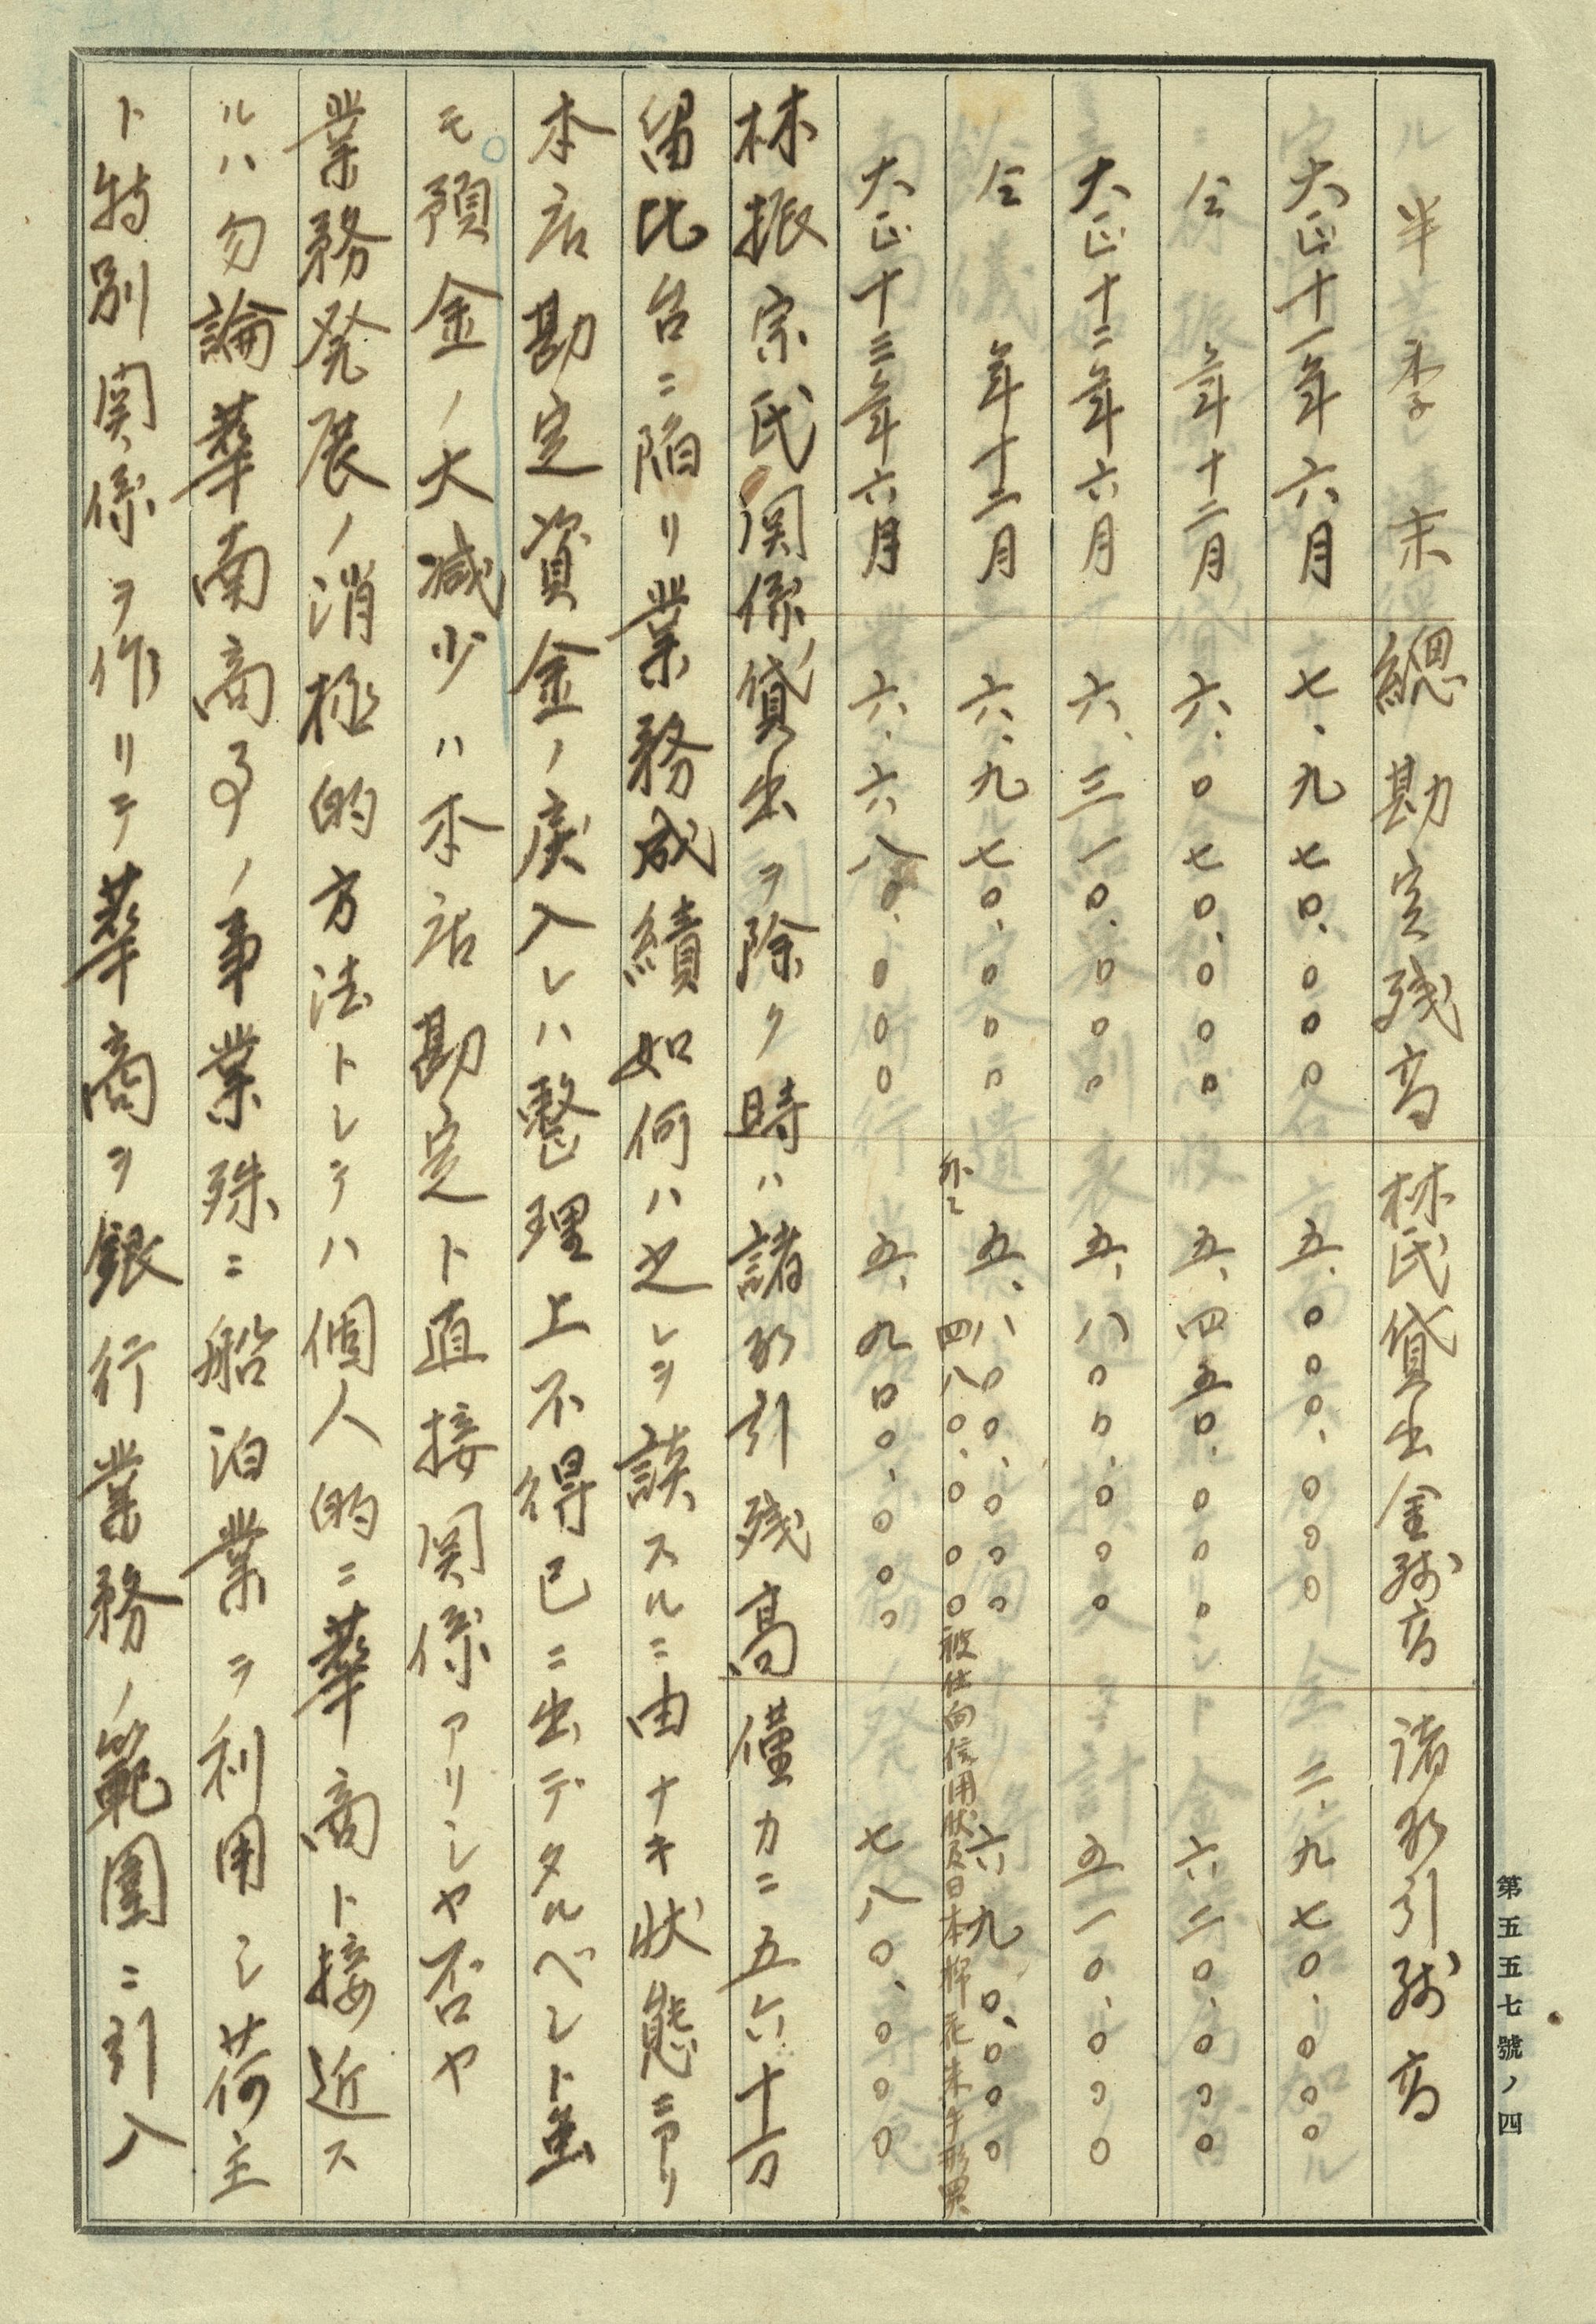 半季末　總勘定残高　林氏貸出金残高　諸形引残高
大正十一年六月　七、九七〇、〇〇〇　五、〇〇〇、〇〇〇　二、九七〇、〇〇〇
仝　年十二月　六、〇七〇、〇〇〇　五、四五〇、〇〇〇　六二〇、〇〇〇
大正十二年六月　六、三一〇、〇〇〇　五、八〇〇、〇〇〇　五一〇、〇〇〇
仝　年十二月　六、九七〇、〇〇〇　五、八〇〇、〇〇〇　六九〇、〇〇〇
外ニ　四八〇、〇〇〇　被仕向信用状及日本棉花未手形買
大正十三年六月　六、六八〇、〇〇〇　五、九〇〇、〇〇〇　七八〇、〇〇〇
林振宗氏関係貸出ヲ除ク時ハ諸形引残高僅カニ五六十万
留比台ニ陥リ業務成績如何ハ之レヲ談スルニ由ナキ状態ニアリ
本店勘定資金ノ戻入レハ整理上不得已ニ出デタルベシト虽
モ預金ノ大減少ハ本店勘定ト直接関係アリシヤ否ヤ
業務発展ノ消極的方法トシテハ個人的ニ華商ト接近ス
ルハ勿論華南商ノ事業殊ニ船泊業ヲ利用シ荷主
ト特別関係ヲ作リテ華商ヲ銀行業務ノ範囲ニ引入
第五五七號ノ四